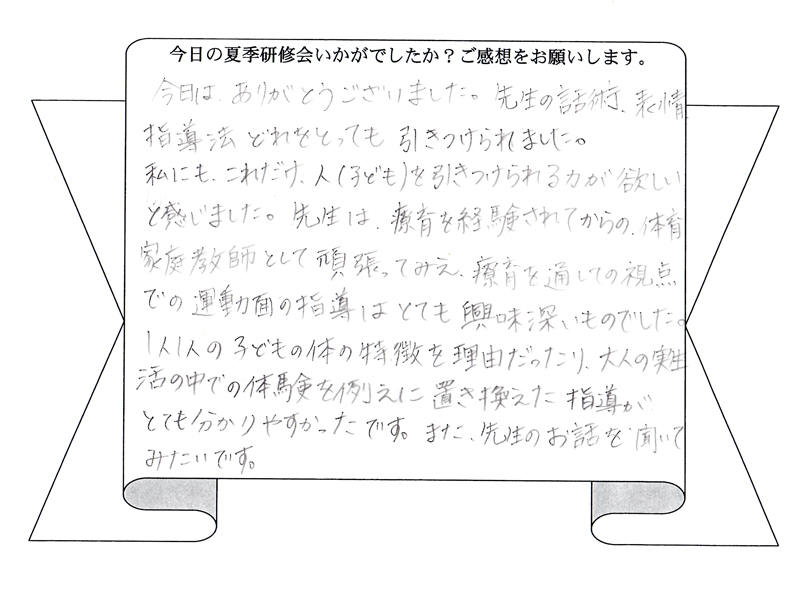 今日の夏季研修会いかがでしたか？ご感想をお願いします。
今日は、ありがとうございました。先生の話術、表情
指導法 どれをとっても 引きつけられました。
私にも、これだけ、人(子ども)を引きつけられる力が欲しい
と感じました。先生は、療育を経験されてからの、体育
家庭教師として頑張ってみえ、療育を通しての視点
での運動面の指導はとても興味深いものでした。
1人1人の子どもの体の特徴を理由だったり、大人の実生
活の中での体験を例えに置き換えた指導が
とても分かりやすかったです。また、先生のお話を聞いて
みたいです。